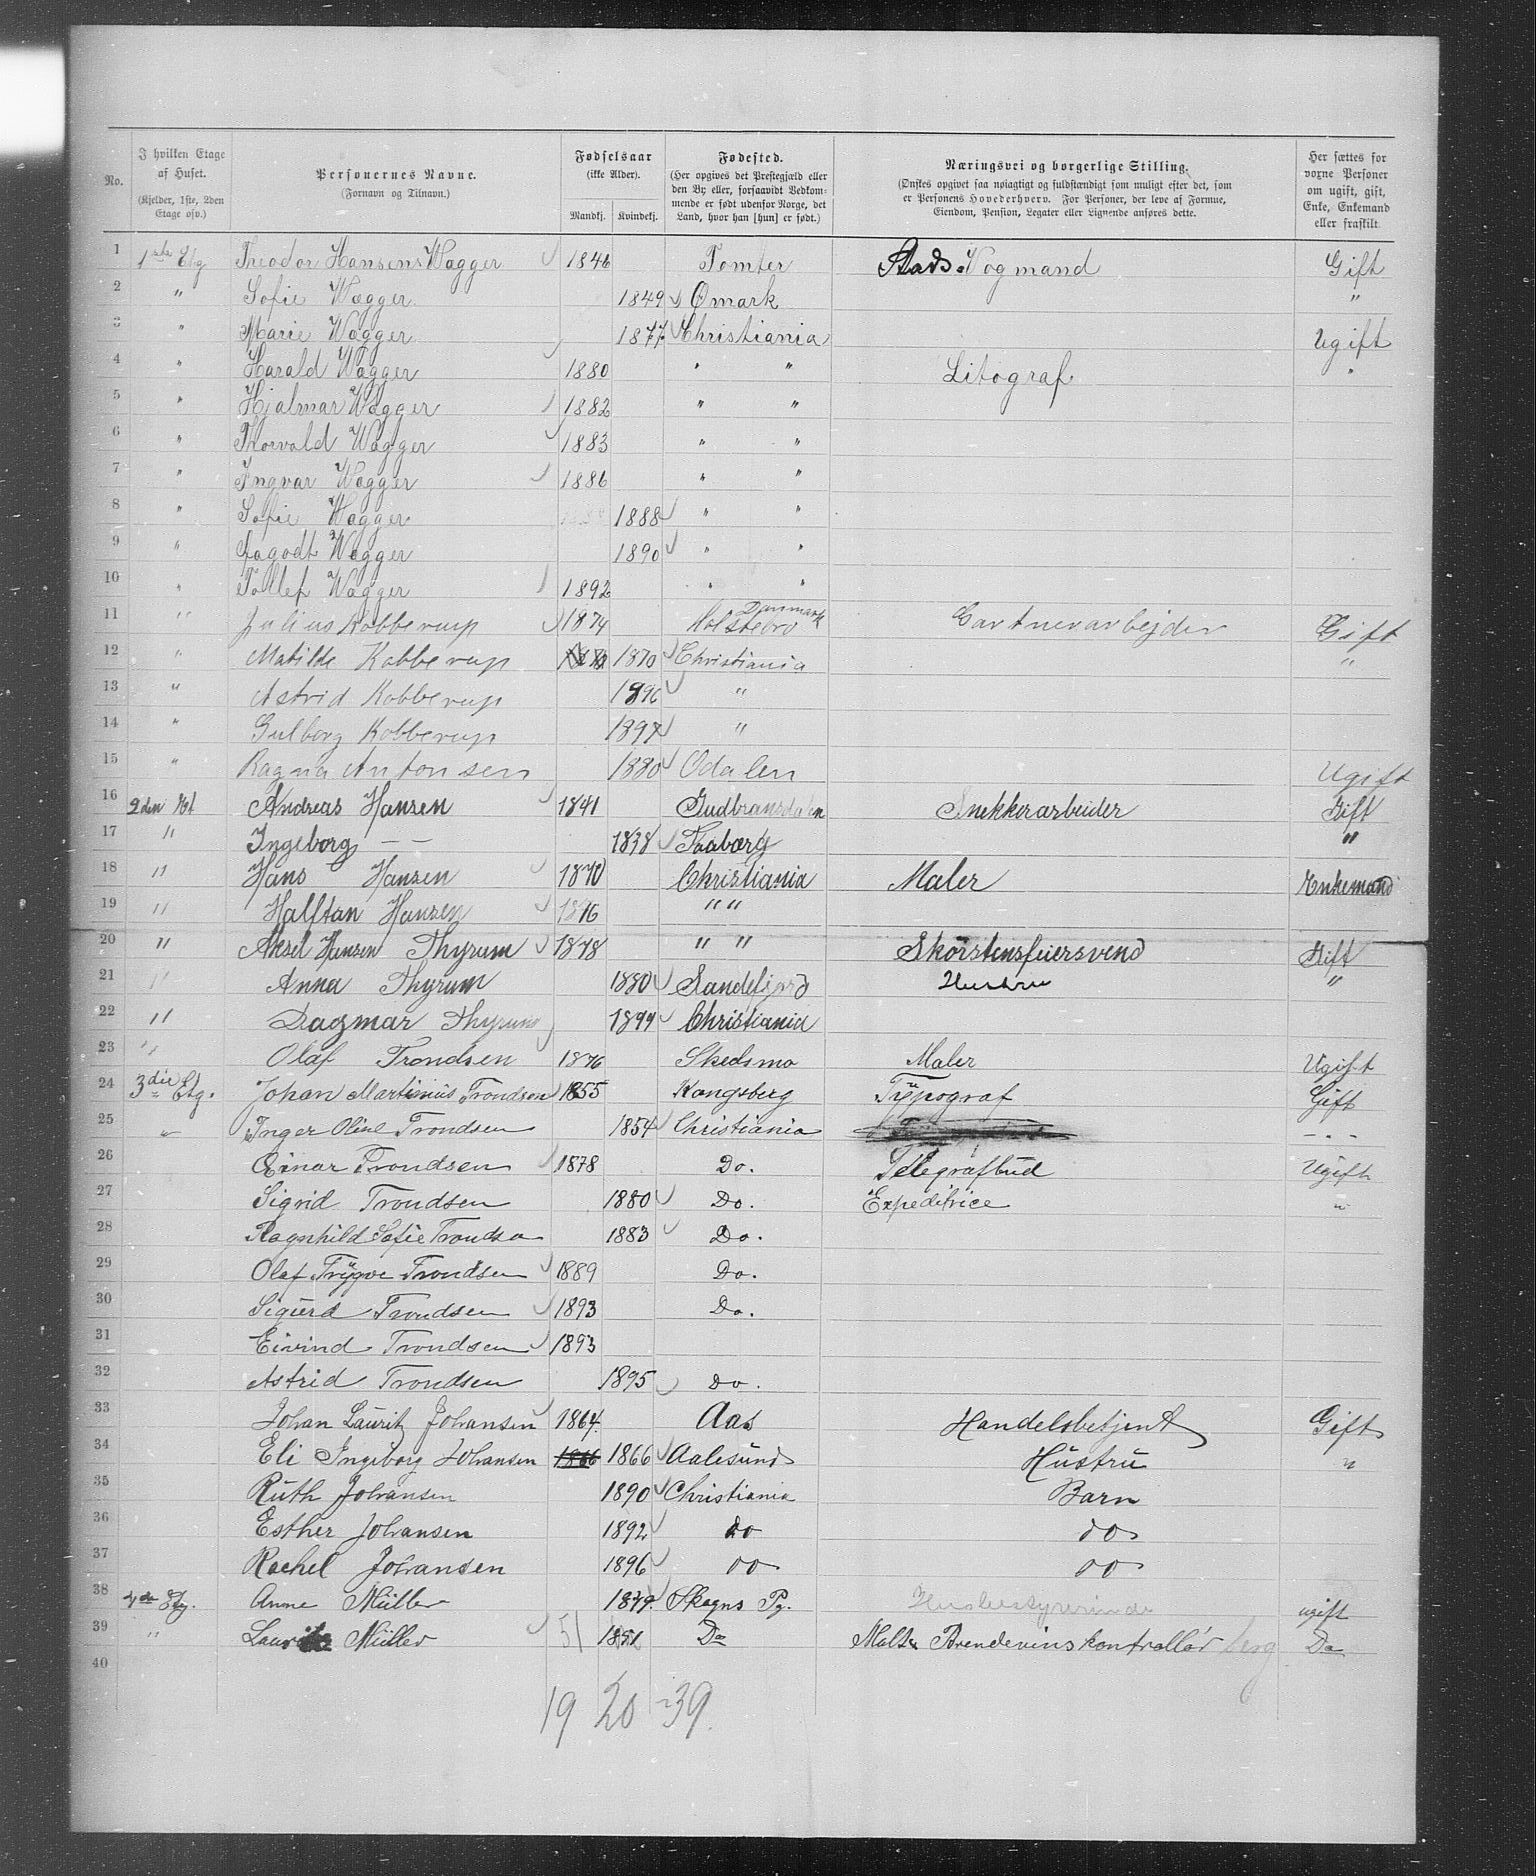 No.
I hvilken Etage af Huset. (Kjelder, 1ste, 2den Etage osv.)
Personernes Navne. (Fornavn og Tilnavn.)
Fødselsaar (ikke Alder). Mandkj. Kvindekj.
Fødested. (Her opgives det Prestegjæld eller den By eller, forsaavidt Vedkommende er født udenfor Norge, det Land, hvor han [hun] er født.)
Næringsvei og borgerlige Stilling. (Ønskes opgivet saa nøiagtigt og fuldstændigt som muligt efter det, som er Personens Hovederhverv. For Personer, der leve af Formue, Eiendom, Pension, Legater eller Lignende anføres dette.)
Her sættes for voxne Personer om ugift, gift, Enke, Enkemand eller fraskilt.
1 1ste Etg Theodor Hansens Wagger 1846 Tomter Stads Vogmand Gift
2 " Sofie Wagger 1849 Ømark "
3 " Marie Wagger 1877 Christiania Ugift
4 " Harald Wagger 1880 " " Litograf "
5 " Hjalmar Wagger 1882 " "
6 " Thorvald Wagger 1883 " "
7 " Ingvar Wagger 1886 " "
8 " Sofie Wagger 1888 " "
9 " Aagodt Wagger 1890 " "
10 " Tollef Wagger 1892 " "
11 " Julius Kobberup 1874 Holstebro Danmark Gartnerarbejder Gift
12 " Matilde Kobberup 1870 Christiania "
13 " Astrid Kobberup 1896 "
14 " Gulborg Kobberup 1897 "
15 " Ragna Antonsen 1880 Odalen Ugift
16 2den Et Andreas Hansen 1841 Gudbransdalen Snekkerarbeider Gift
17 " Ingeborg — — 1838 Faaberg "
18 " Hans Hansen 1870 Christiania Maler Enkemand
19 " Halftan Hansen 1876 " "
20 " Aksel Hansen Thyrum 1878 " " Skorstensfeiersvend Gift
21 " Anna Thyrum 1880 Sandefjord Hustru "
22 " Dagmar Thyrum 1899 Christiania
23 " Olaf Trondsen 1876 Skedsmo Maler Ugift
24 3die Etg. Johan Martinius Trondsen 1855 Kongsberg Typograf Gift
25 " Inger Oline Trondsen 1854 Christiania - " -
26 Einar Trondsen 1878 Do. Telegrafbud Ugift
27 Sigrid Trondsen 1880 Do. Expeditrice "
28 Ragnhild Sofie Trondsen 1883 Do.
29 Olaf Trygve Trondsen 1889 Do.
30 Sigurd Trondsen 1893 Do.
31 Eivind Trondsen 1893
32 Astrid Trondsen 1895 Do.
33 Johan Lauritz Johansen 1864. Aas Handelsbetjent Gift
34 Eli Ingeborg Johansen 1866 1866 Aalesund Hustru "
35 Ruth Johansen 1890 Christiania Barn
36 Esther Johansen 1892 do do
37 Rachel Johansen 1896 do do
38 4de Etg. Anne Müller 1879. Skogns Pg. Husbestyrerinde ugift
39 " Müller 51 1851 Do Malt & Brendevinskontrollør Do
40
19 20 - 39.